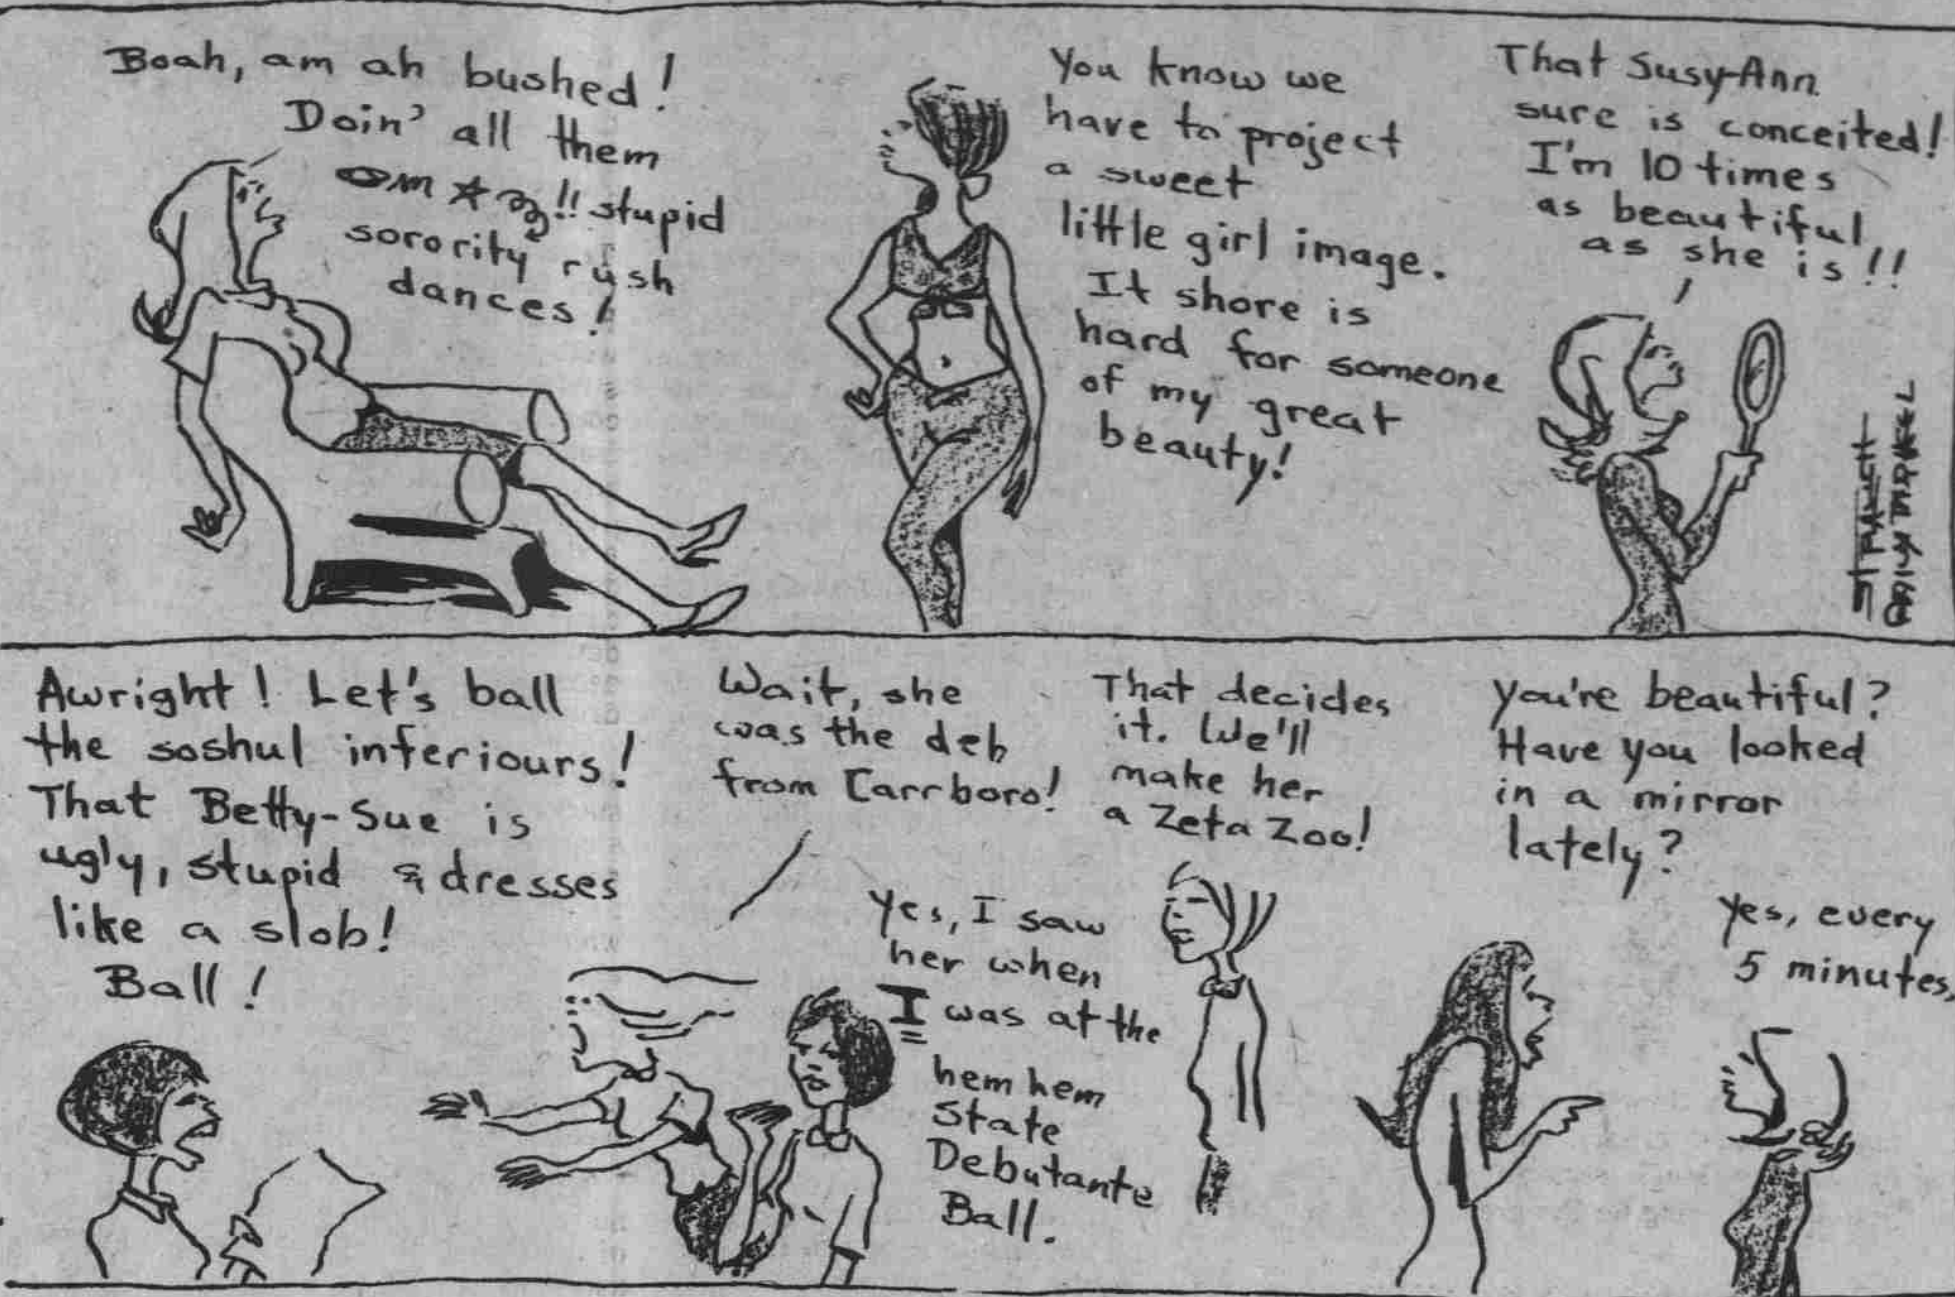 Boah, am ah bushed!
Doin' all them
!! stupid
sorority rush
dances!
You know we
have to project
a sweet
little girl image.
It shore is
hard for someone
of my great
beauty!
That Susy-Ann
sure is conceited!
I'm 10 times
as beautiful
as she is!!
DAILY TARHEEL
Awright! Let's ball
the soshul inferiours!
That Betty-Sue is
ugly, stupid & dresses
like a slob!
Ball!
Wait, she
was the deb
from Carrboro!
Yes, I saw
her when
I was at the
hem hem
State
Debutante
Ball.
That decides
it. We'll
make her
a Zeta Zoo!
You're beautiful?
Have you looked
in a mirror
lately?
Yes, every
5 minutes.